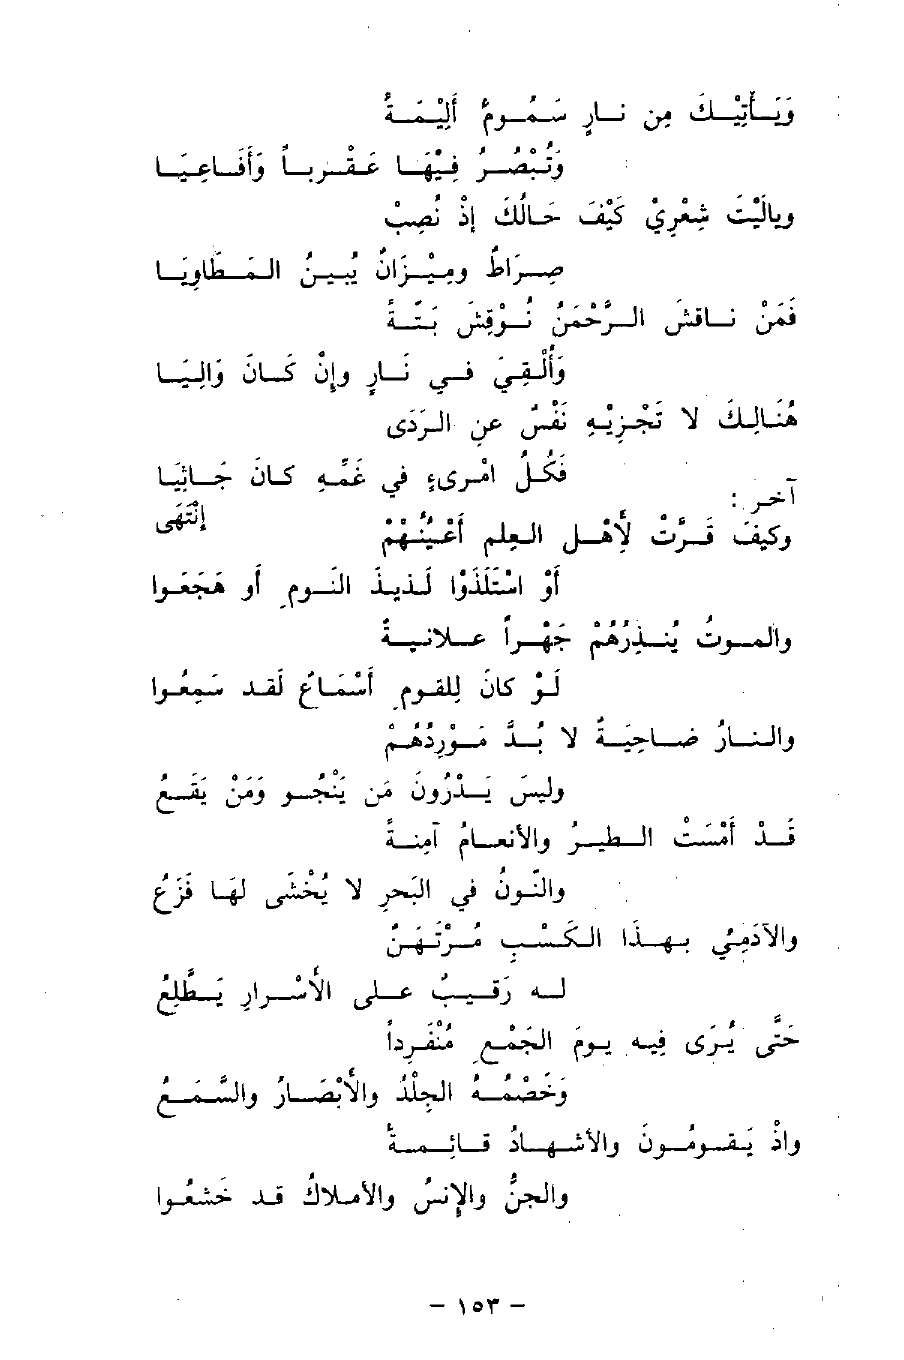 وَيَأْتِيْكَ مِن نارٍ سَمُومٌ أَلِيْمَةٌ
وَتُبْصِرُ فِيْهَا عَقْرباً وَأَفَاعِيَا
وياليْتَ شِعْرِيْ كَيْفَ حَالُكَ إذْ نُصِبْ
صِراطٌ ومِيْزَانٌ يُبينُ المَطَاوِيَا
فَمَنْ ناقشَ الرَّحْمَنُ نُوْقِشَ بَتَّةً
وَأُلْقِيَ في نَارٍ وإنْ كَانَ وَالِيَا
هُنَالِكَ لا تَجْزِيْهِ نَفْسٌ عنِ الرَدَى
فَكُلُ امْرىءٍ في غَمِّهِ كانَ جَاثِيَا
إِنْتَهَى
آخر :
وكيفَ قَرَّتْ لأَهْلِ العِلمِ أَعْيُنُهُمْ
أوْ اسْتَلَذوْا لَذيذَ النَومِ أو هَجَعَوا
والموتُ يُنذِرُهُمْ جَهْراً عَلانيةً
لَوْ كانَ لِلقومِ أَسْمَاعٌ لَقد سَمِعُوا
والنارُ ضاحِيَةٌ لا بُدَّ مَوْرِدُهُمْ
وليسَ يَدْرُونَ مَن يَنْجُو وَمَنْ يَقَعُ
قَدْ أَمْسَتْ الطيرُ والأنعامُ آمِنةً
والنّونُ في البَحرِ لا يُخْشَى لهَا فَزَعُ
والآدَمِيُ بهذَا الكَسْبِ مُرْتَهَنٌ
له رَقيبٌ على الأَسْرارِ يَطَّلِعُ
حَتَّى يُرَى فيه يومَ الجَمْعِ مُنْفَرِداً
وَخَصْمُهُ الجِلْدُ والأَبْصَارُ والسَّمَعُ
واذْ يَقومُونَ والأشهادُ قائِمةٌ
والجنُّ والإنسُ والأملاكُ قد خَشعُوا
- ١٥٣ -